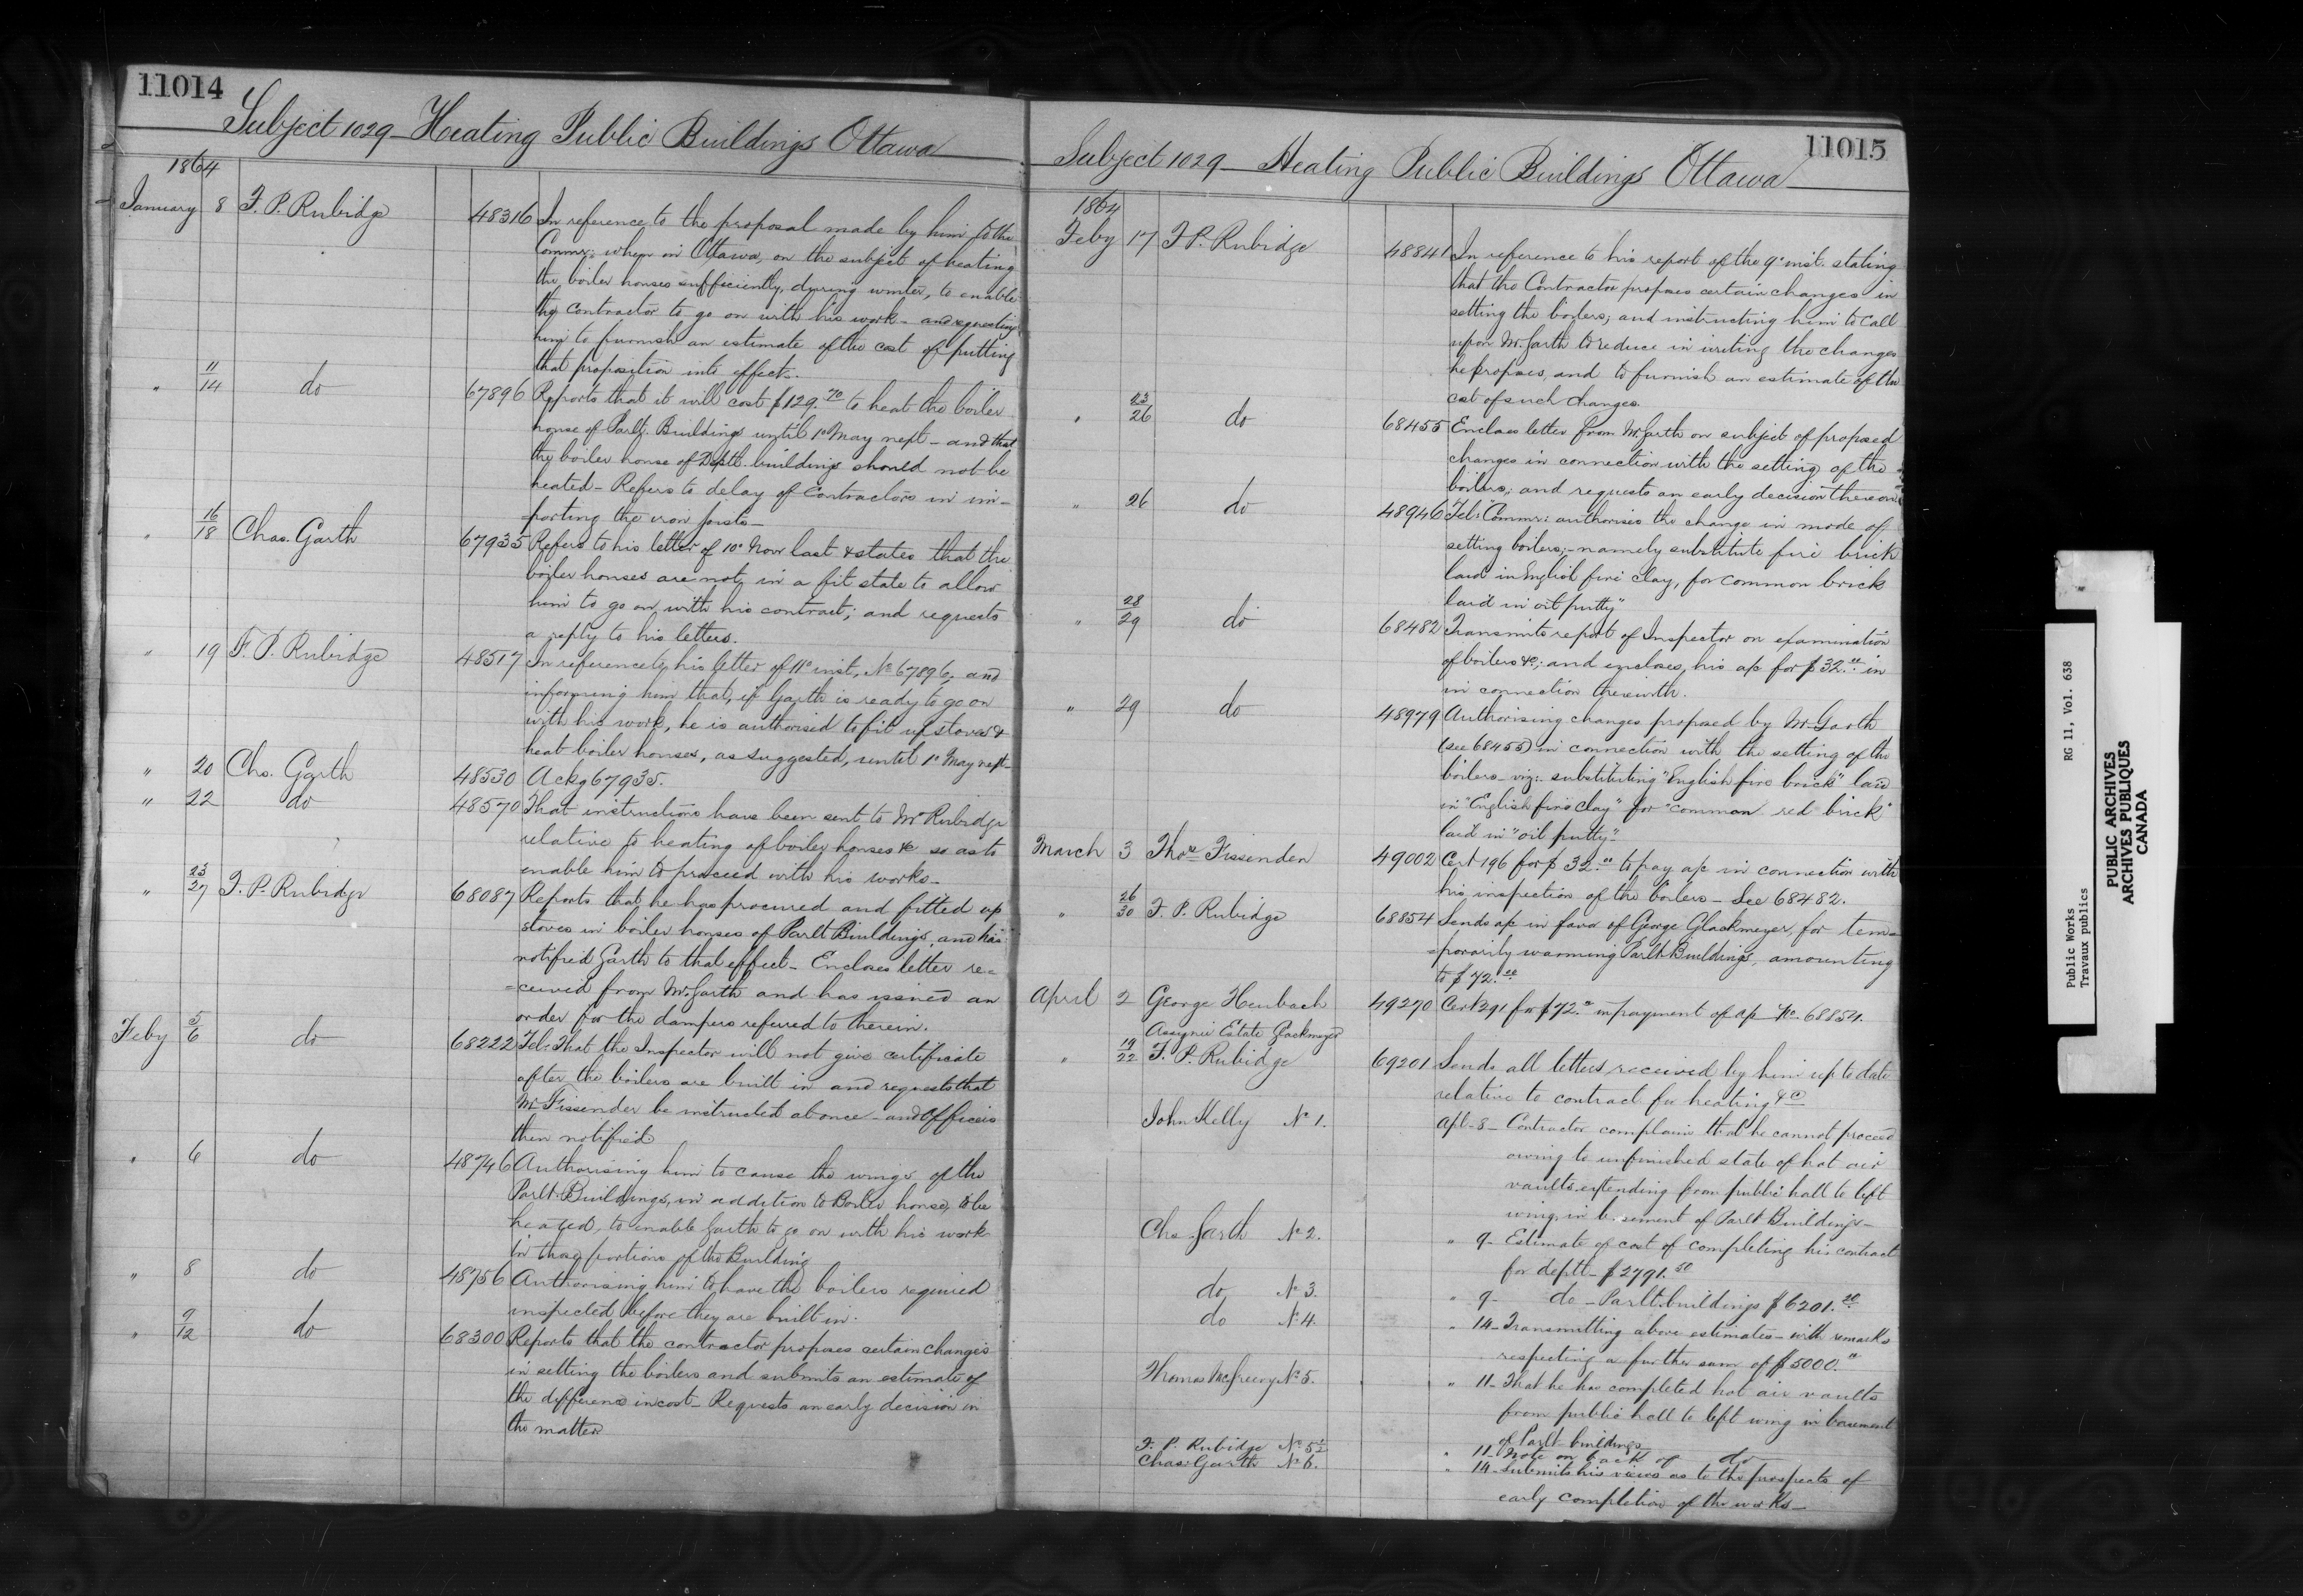 11014
Subject 1029 - Heating Public Buildings Ottawa
1864
January 8 F. P. Rubidge 48316 In reference to the proposal made by him to the
Commr: when in Ottawa, on the subject of heating
the boiler houses sufficiently, during winter, to enable
the contractor to go on with his work - and requesting
him to furnish an estimate of the cost of putting
that proposition into effect.
" 11/14 do 67896 Reports that it will cost $129.70 to heat the boiler
house of Parlt. Buildings until 1st May next - and that
the boiler house of Deptl. buildings should not be
heated - Refers to delay of Contractors in im-
porting the iron joists -
" 16/18 Chas. Garth 67935 Refers to his letter of 10th Novr last & states that the
boiler houses are not in a fit state to allow
him to go on with his contract; and requests
a reply to his letters.
" 19 F. P. Rubidge 48517 In reference to his letter of 11th inst, No 67896, and
informing him that, if Garth is ready to go on
with his work, he is authorised to fit up stoves &
heat boiler houses, as suggested, until 1st May next -
" 20 Chs. Garth 48530 Ackg 67935.
" 22 do 48570 That instructions have been sent to Mr Rubidge
relative to heating of boiler houses &c so as to
enable him to proceed with his works -
" 23/27 F. P. Rubidge 68087 Reports that he has procured and fitted up
stoves in boiler houses of Parlt Buildings, and has
notified Garth to that effect - Encloses letter re=
=ceived from Mr. Garth and has issued an
order for the dampers referred to therein.
Feby 5/6 do 68222 Tel: That the Inspector will not give certificate
after the boilers are built in and requests that
Mr Fissenden be instructed at once - and officers
then notified
" 6 do 48746 Authorising him to cause the wings of the
Parlt. Buildings, in addition to Boiler house, to be
heated, to enable Garth to go on with his work
in those portions of the Building
" 8 do 48756 Authorising him to have the boilers required
inspected before they are built in.
" 9/12 do 68300 Reports that the contractor proposes certain changes
in setting the boilers and submits an estimate of
the difference in cost - Requests an early decision in
the matter
11015
Subject 1029 - Heating Public Buildings Ottawa
1864
Feby 17 F. P. Rubidge 48841 In reference to his report of the 9th inst. stating
that the Contractor proposes certain changes in
setting the boilers; and instructing him to call
upon Mr. Garth to reduce in writing the changes
he proposes, and to furnish an estimate of the
cost of such changes.
" 23/26 do 68455 Encloses letter from Mr. Garth on subject of proposed
changes in connection with the setting of the
boilers; and requests an early decision thereon.
" 26 do 48946 Tel: Commr: authorises the change in mode of
setting boilers; - namely substitute fire brick
laid in English fire clay, for common brick
laid in oil putty"
" 28/29 do 68482 Transmits report of Inspector on examination
of boilers &c; and encloses his a/c for $32.00 in
in connection therewith.
" 29 do 48979 Authorising changes proposed by Mr Garth
(see 68455) in connection with the setting of the
boilers - viz: - substituting "English fire brick" laid
in "English fire clay" for "common red brick"
laid in "oil putty"
March 3 Thos Fissenden 49002 Cert 196 for $32.00 to pay a/c in connection with
his inspection of the boilers - See 68482.
" 26/30 F. P. Rubidge 68854 Sends a/c in favor of George Glackmeyer, for tem=
=porarily warming Parlt Buildings, amounting
to $72.00
April 2 George Heubach 49270 Cert 291 for $72.00 in payment of a/c No. 68854.
Assignee Estate Glackmeyer
" 19/22 F. P. Rubidge 69201 Sends all letters received by him up to date
relative to contract for heating &c
John Kelly No 1. Apl - 8 - Contractor complains that he cannot proceed
owing to unfinished state of hot air
vaults extending from public hall to left
wing in basement of Parlt Buildings -
Chs. Garth No 2. " 9 - Estimate of cost of completing his contract
for deptl - $2791.50
do No 3. " 9 - do - Parlt buildings $6201.20
do No 4. " 14 - Transmitting above estimates - with remarks
respecting a further sum of $5000.00
Thomas McGreevy No 5. " 11 - That he has completed hot air vaults
from public hall to left wing in basement
of Parlt buildings
F. P. Rubidge No 5 1/2 " 11 - Note on back of do
Chas Garth No 6. " 14 - Submits his views as to the prospects of
early completion of the works -
Public Works RG 11, Vol. 638
Travaux publics
PUBLIC ARCHIVES
ARCHIVES PUBLIQUES
CANADA